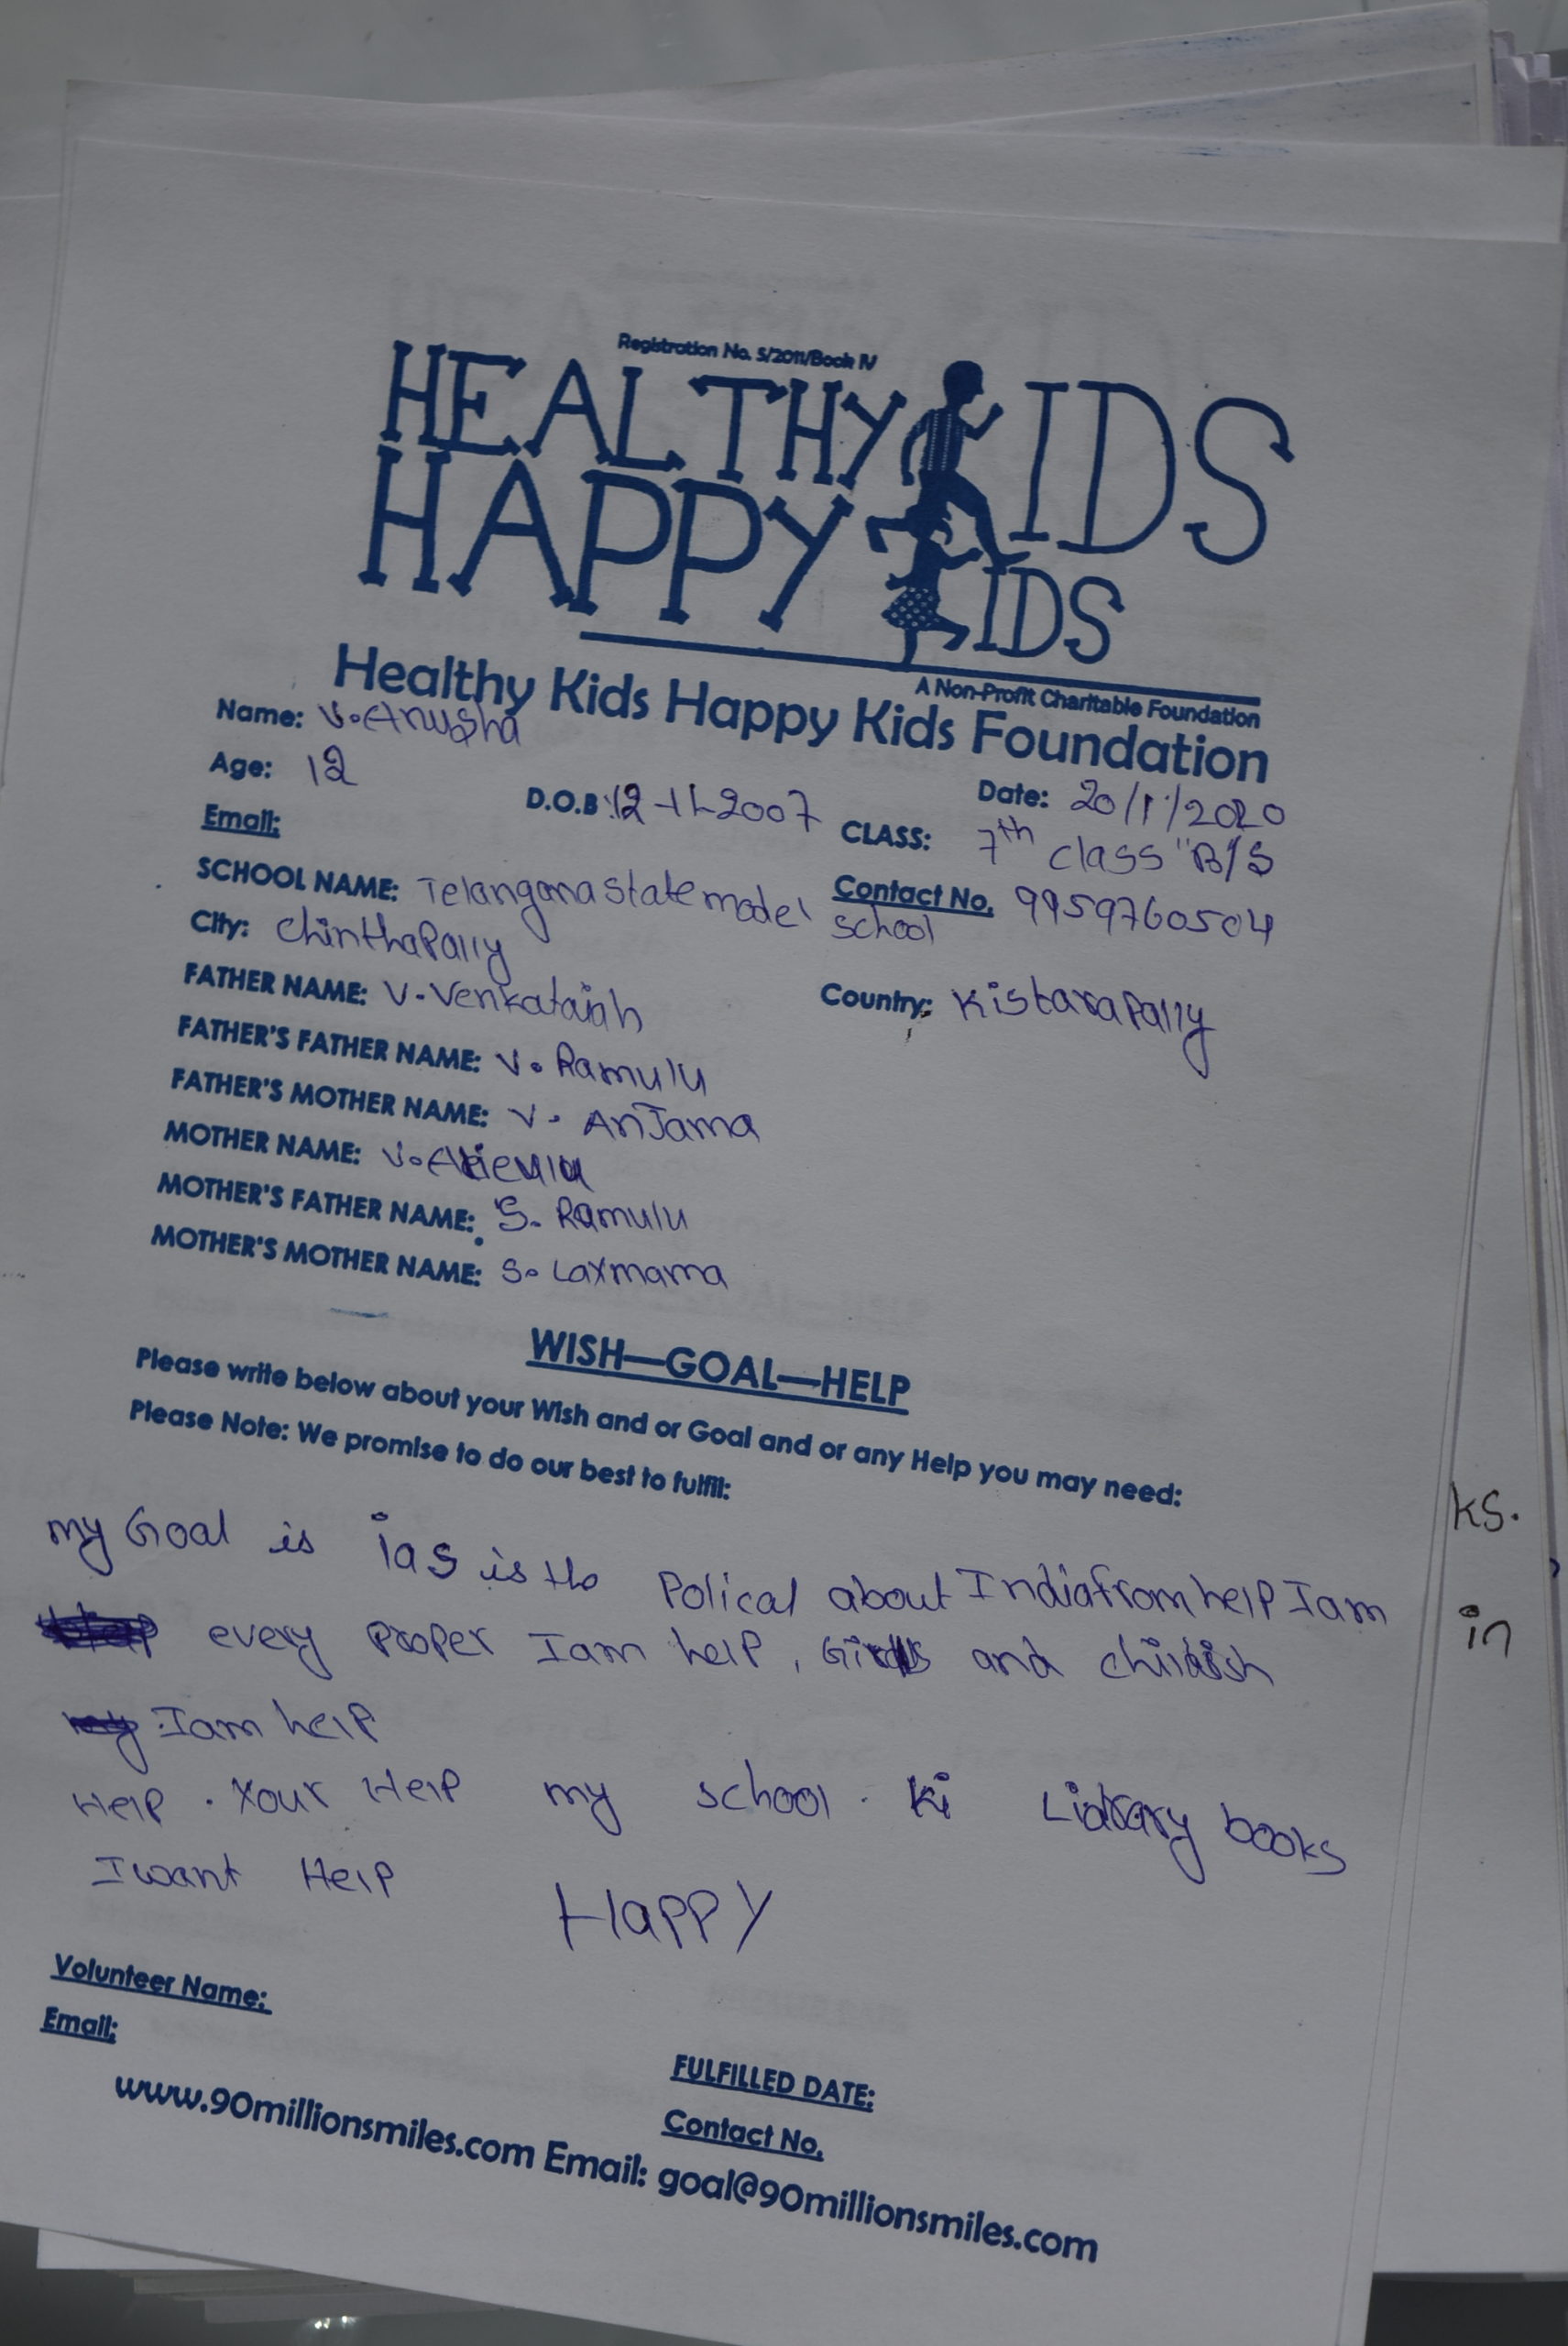 Registration No. 5/2011/Book IV
HEALTHY KIDS
HAPPY KIDS
A Non-Profit Charitable Foundation
Healthy Kids Happy Kids Foundation
Name: V. Anusha
Date: 20/1/2020
Age: 12 D.O.B: 12-11-2007 CLASS: 7th class "B/S
Email: Contact No. 9959760504
SCHOOL NAME: Telangana state model school
City: chinthapally Country: Kistarapally
FATHER NAME: V. Venkataiah
FATHER'S FATHER NAME: V. Ramulu
FATHER'S MOTHER NAME: V. AnJama
MOTHER NAME: V.
MOTHER'S FATHER NAME: S. Ramulu
MOTHER'S MOTHER NAME: S. Laxmama
WISH—GOAL—HELP
Please write below about your Wish and or Goal and or any Help you may need:
Please Note: We promise to do our best to fulfil:
my Goal is ias is the Polical about India from help I am
every proper I am help, and
I am help
Help . Your Help my school ki Lidrary books
I want Help Happy
Volunteer Name: FULFILLED DATE:
Email: Contact No.
www.90millionsmiles.com Email: goal@90millionsmiles.com
ks.
in